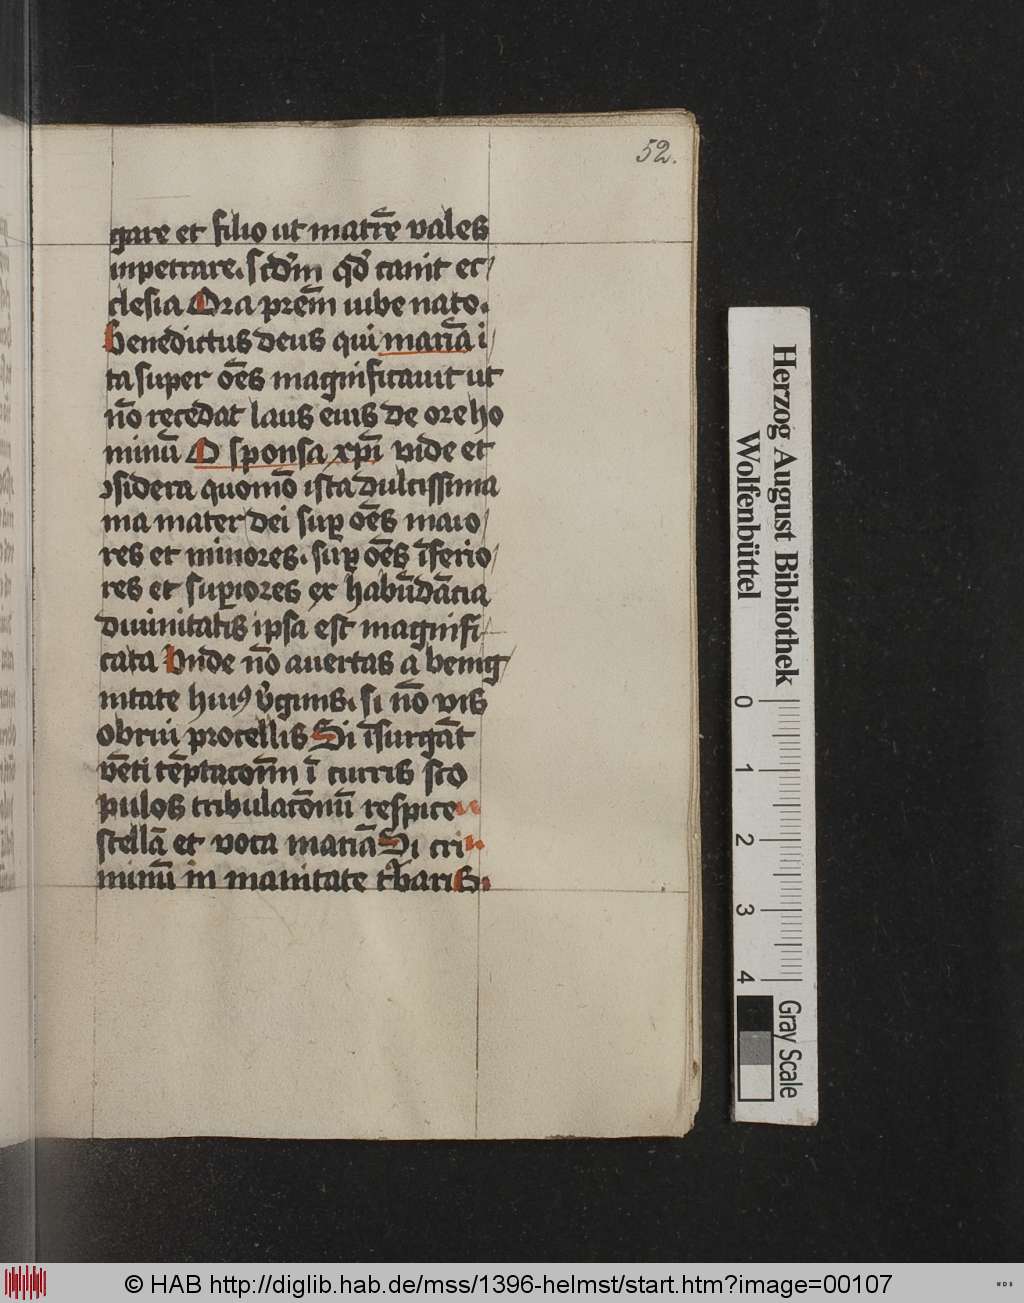 52.
gare et filio ut matrē vales
inpetrare. scd̄m qd̄ canit ec/
clesia Ora prēm iube nato.
Benedictus deus qui mariā i/
ta super oēs magnificauit ut
nō recedat laus eius de ore ho
minū O sponsa xpī vide et
ꝯsidera quomō ista dulcissima
ma mater dei suꝑ oēs maio/
res et minores. suꝑ oēs īferio/
res et suꝑiores ex habūdācia
diuinitatis ipsa est magnifi-
cata Vnde nō auertas a benig/
nitate huiꝰ v̄ginis. si nō vis
obrui procellis Si īsurgāt
vēti tēptaconm̄ ī curris sco
pulos tribulacōnū respice
stellā et voca mariā Si cri
minū in manitate t̄baris.
Herzog August Bibliothek
Wolfenbüttel
0 1 2 3 4
Gray Scale
© HAB http://diglib.hab.de/mss/1396-helmst/start.htm?image=00107
WDB